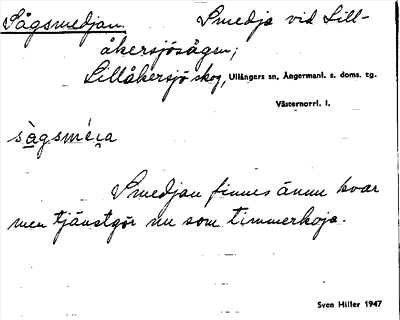 Sågsmedjan. Smedja vid Lill-
åkersjösågen;
Lillåkersjö skog, Ullångers sn, Ångermanl. s. doms. tg.
Västernorrl. l.
Smedjan finnes ännu kvar
men tjänstgör nu som timmerkoja.
Sven Hiller 1947